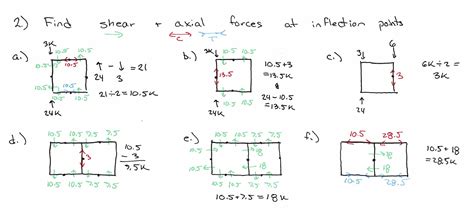 2.) Find shear + axial forces at inflection points
T
C
a.)
3K
10.5 10.5
10.5
10.5 10.5
24 3
24K
↑ - ↓ = 21
21÷2 = 10.5K
b.)
3K
10.5
13.5
10.5
24K
10.5+3
=13.5K
24-10.5
=13.5K
c.)
3
6
3
24K
6K÷2=
3K
d.)
10.5 10.5 7.5 7.5
3
10.5 10.5 7.5 7.5
10.5
- 3
7.5K
e.)
10.5 10.5 7.5 7.5
18
18
10.5 10.5 7.5 7.5
10.5+7.5=18K
f.)
10.5 28.5
18
18
10.5 28.5
10.5+18
=28.5K